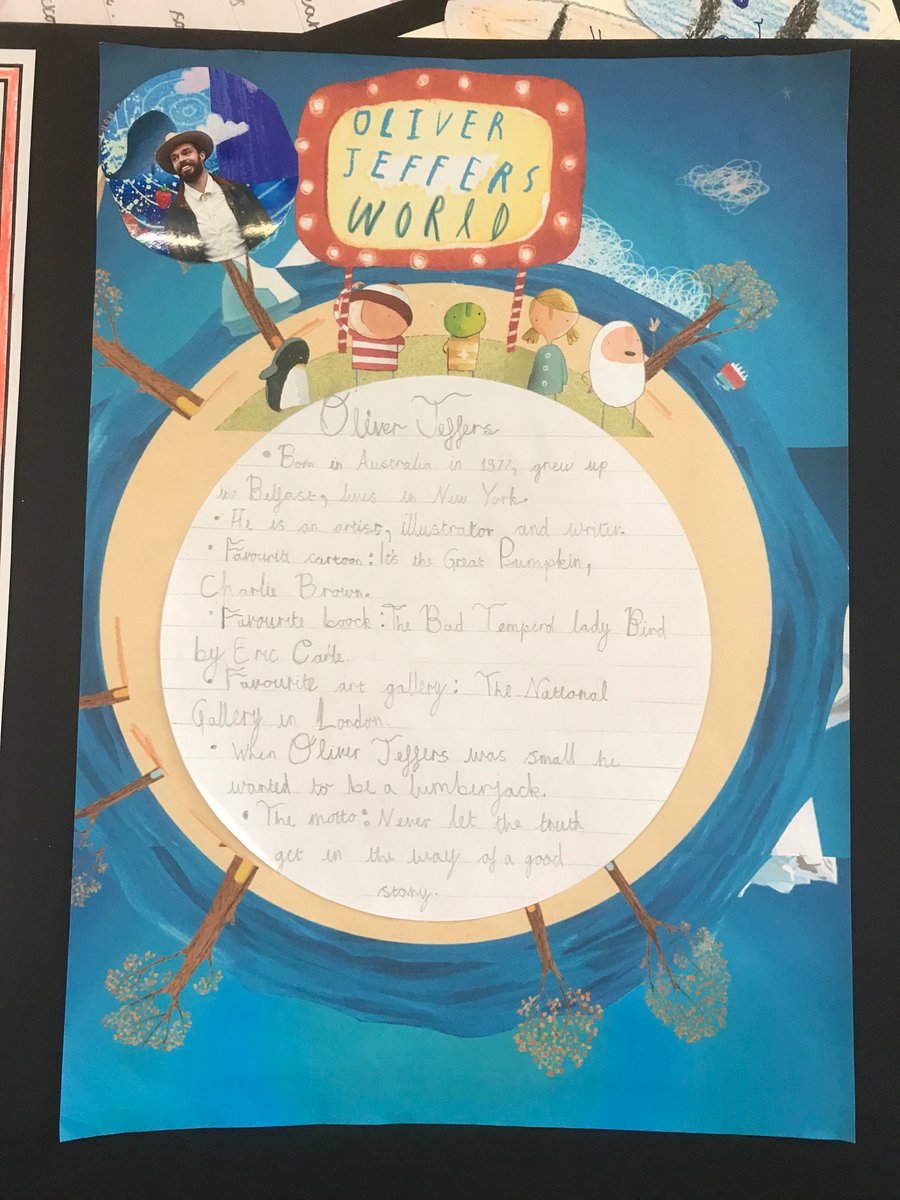 OLIVER
JEFFERS
WORLD
Oliver Jeffers
• Born in Australia in 1977, grew up
in Belfast, lives in New York.
• He is an artist, illustrator and writer.
• Favourite cartoon: It's the Great Pumpkin,
Charlie Brown.
• Favourite boock: The Bad Temperd lady Bird
by Eric Carle.
• Favourite art gallery: The National
Gallery in London.
• When Oliver Jeffers was small he
wanted to be a lumberjack.
• The motto: Never let the truth
get in the way of a good
story.